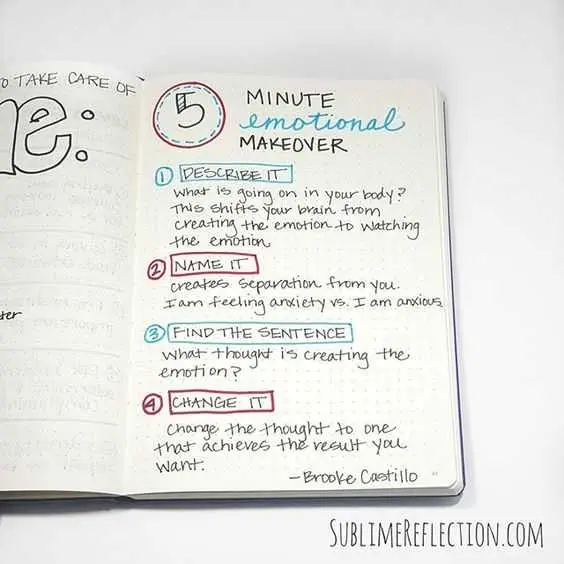 O TAKE CARE OF
me:
ter
5
MINUTE
emotional
MAKEOVER
1 DESCRIBE IT
What is going on in your body?
This shifts your brain from
creating the emotion to watching
the emotion
2 NAME IT
creates separation from you.
I am feeling anxiety vs. I am anxious
3 FIND THE SENTENCE
What thought is creating the
emotion?
4 CHANGE IT
Change the thought to one
that achieves the result you
want.
—Brooke Castillo
SUBLIMEREFLECTION.COM